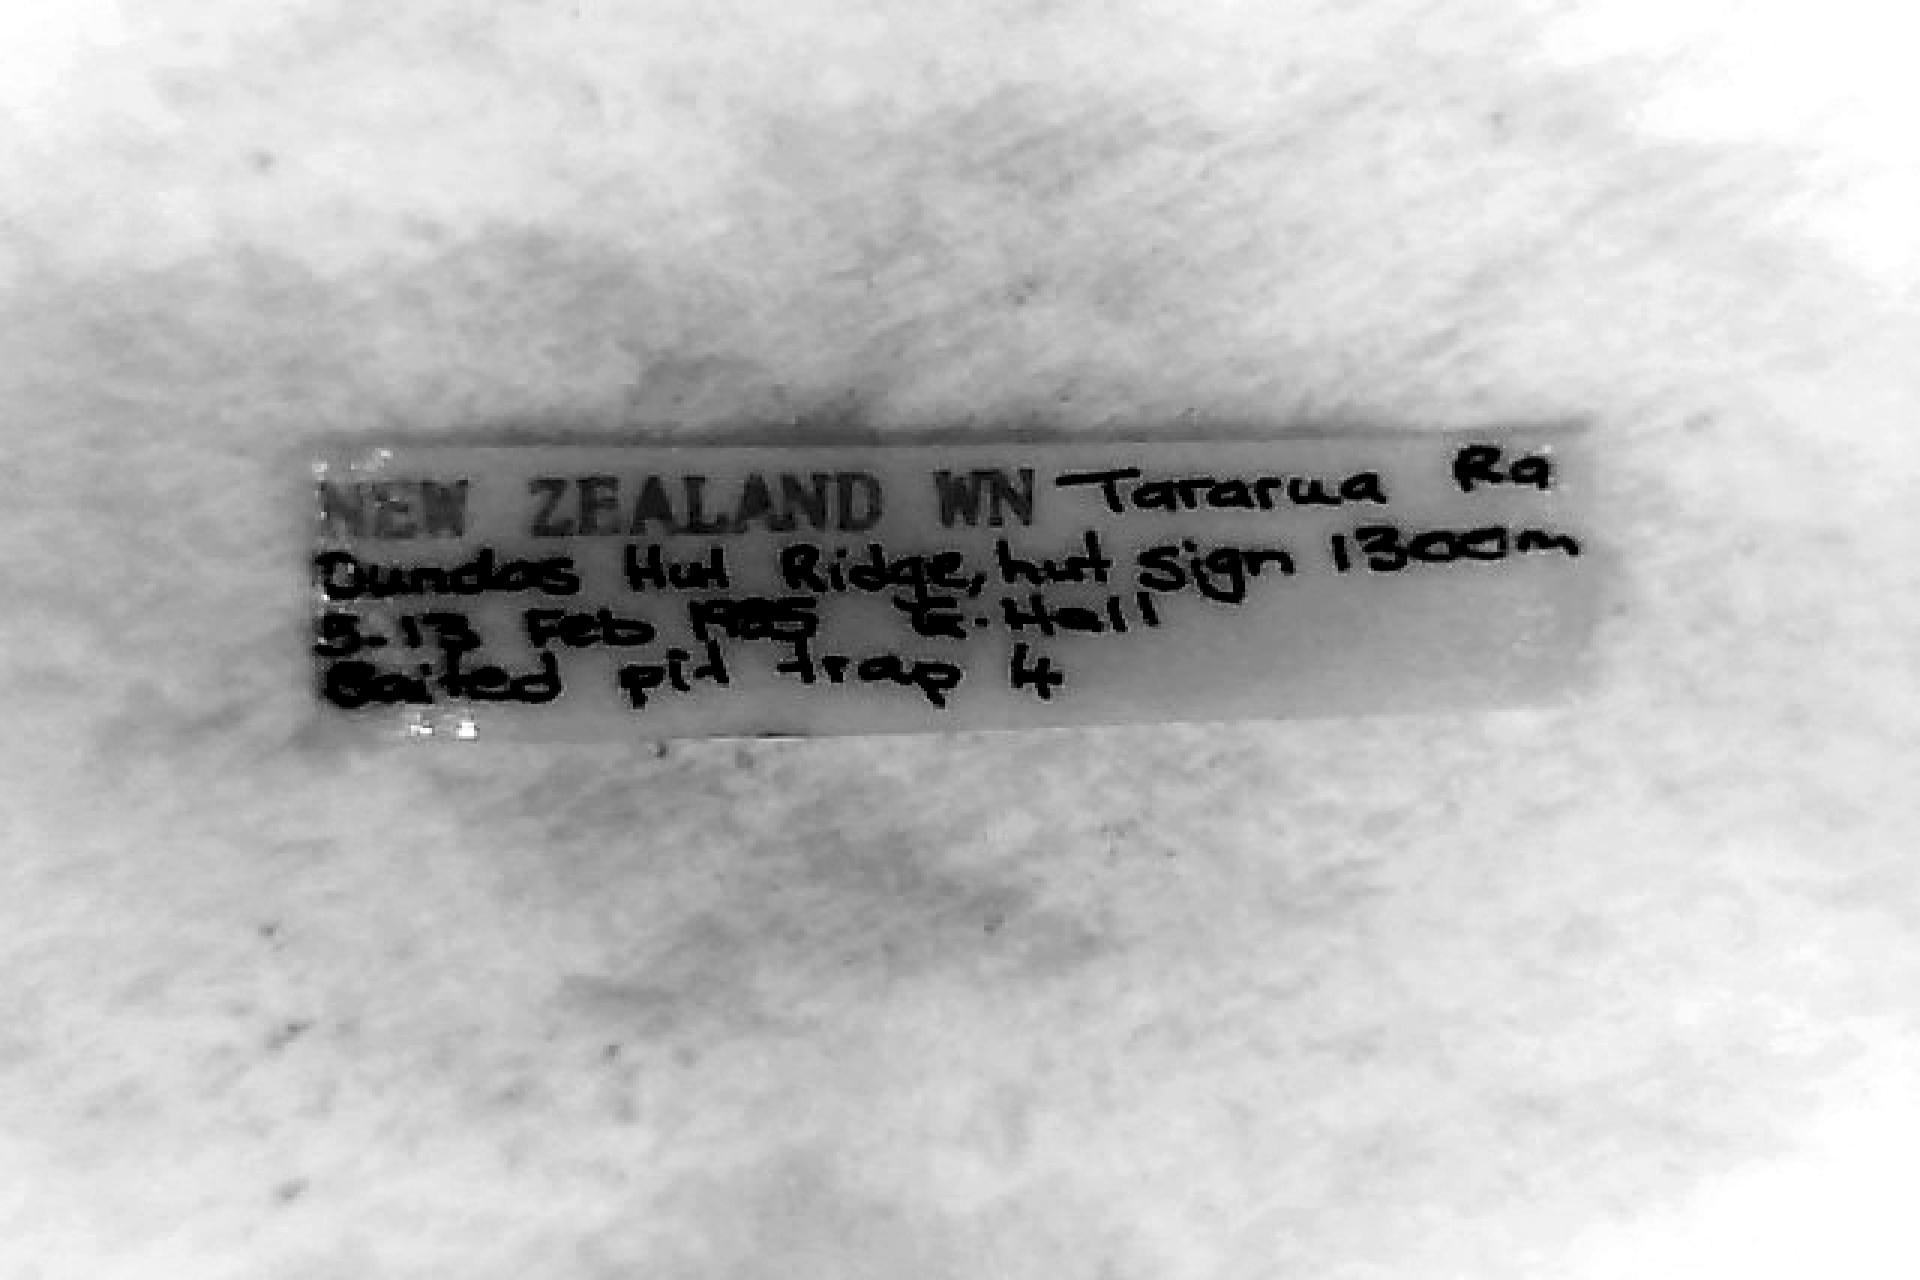 NEW ZEALAND WN Tararua Ra
Dundas Hut Ridge, hut sign 1300m
5-13 Feb 1985 E. Hall
Baited pit trap 4